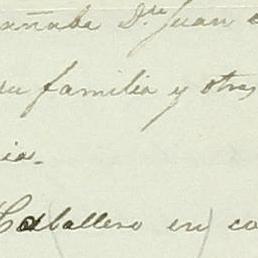 añaba D.ⁿ Juan
su familia y otras
ia.
Caballero en co